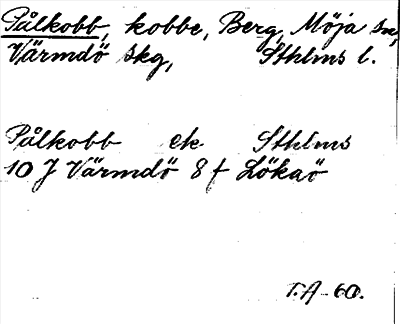 Pålkobb, kobbe, Berg, Möja sn,
Värmdö skg, Sthlms l.
Pålkobb ek Sthlms
10 J Värmdö 8 f Lökaö
T.A-60.